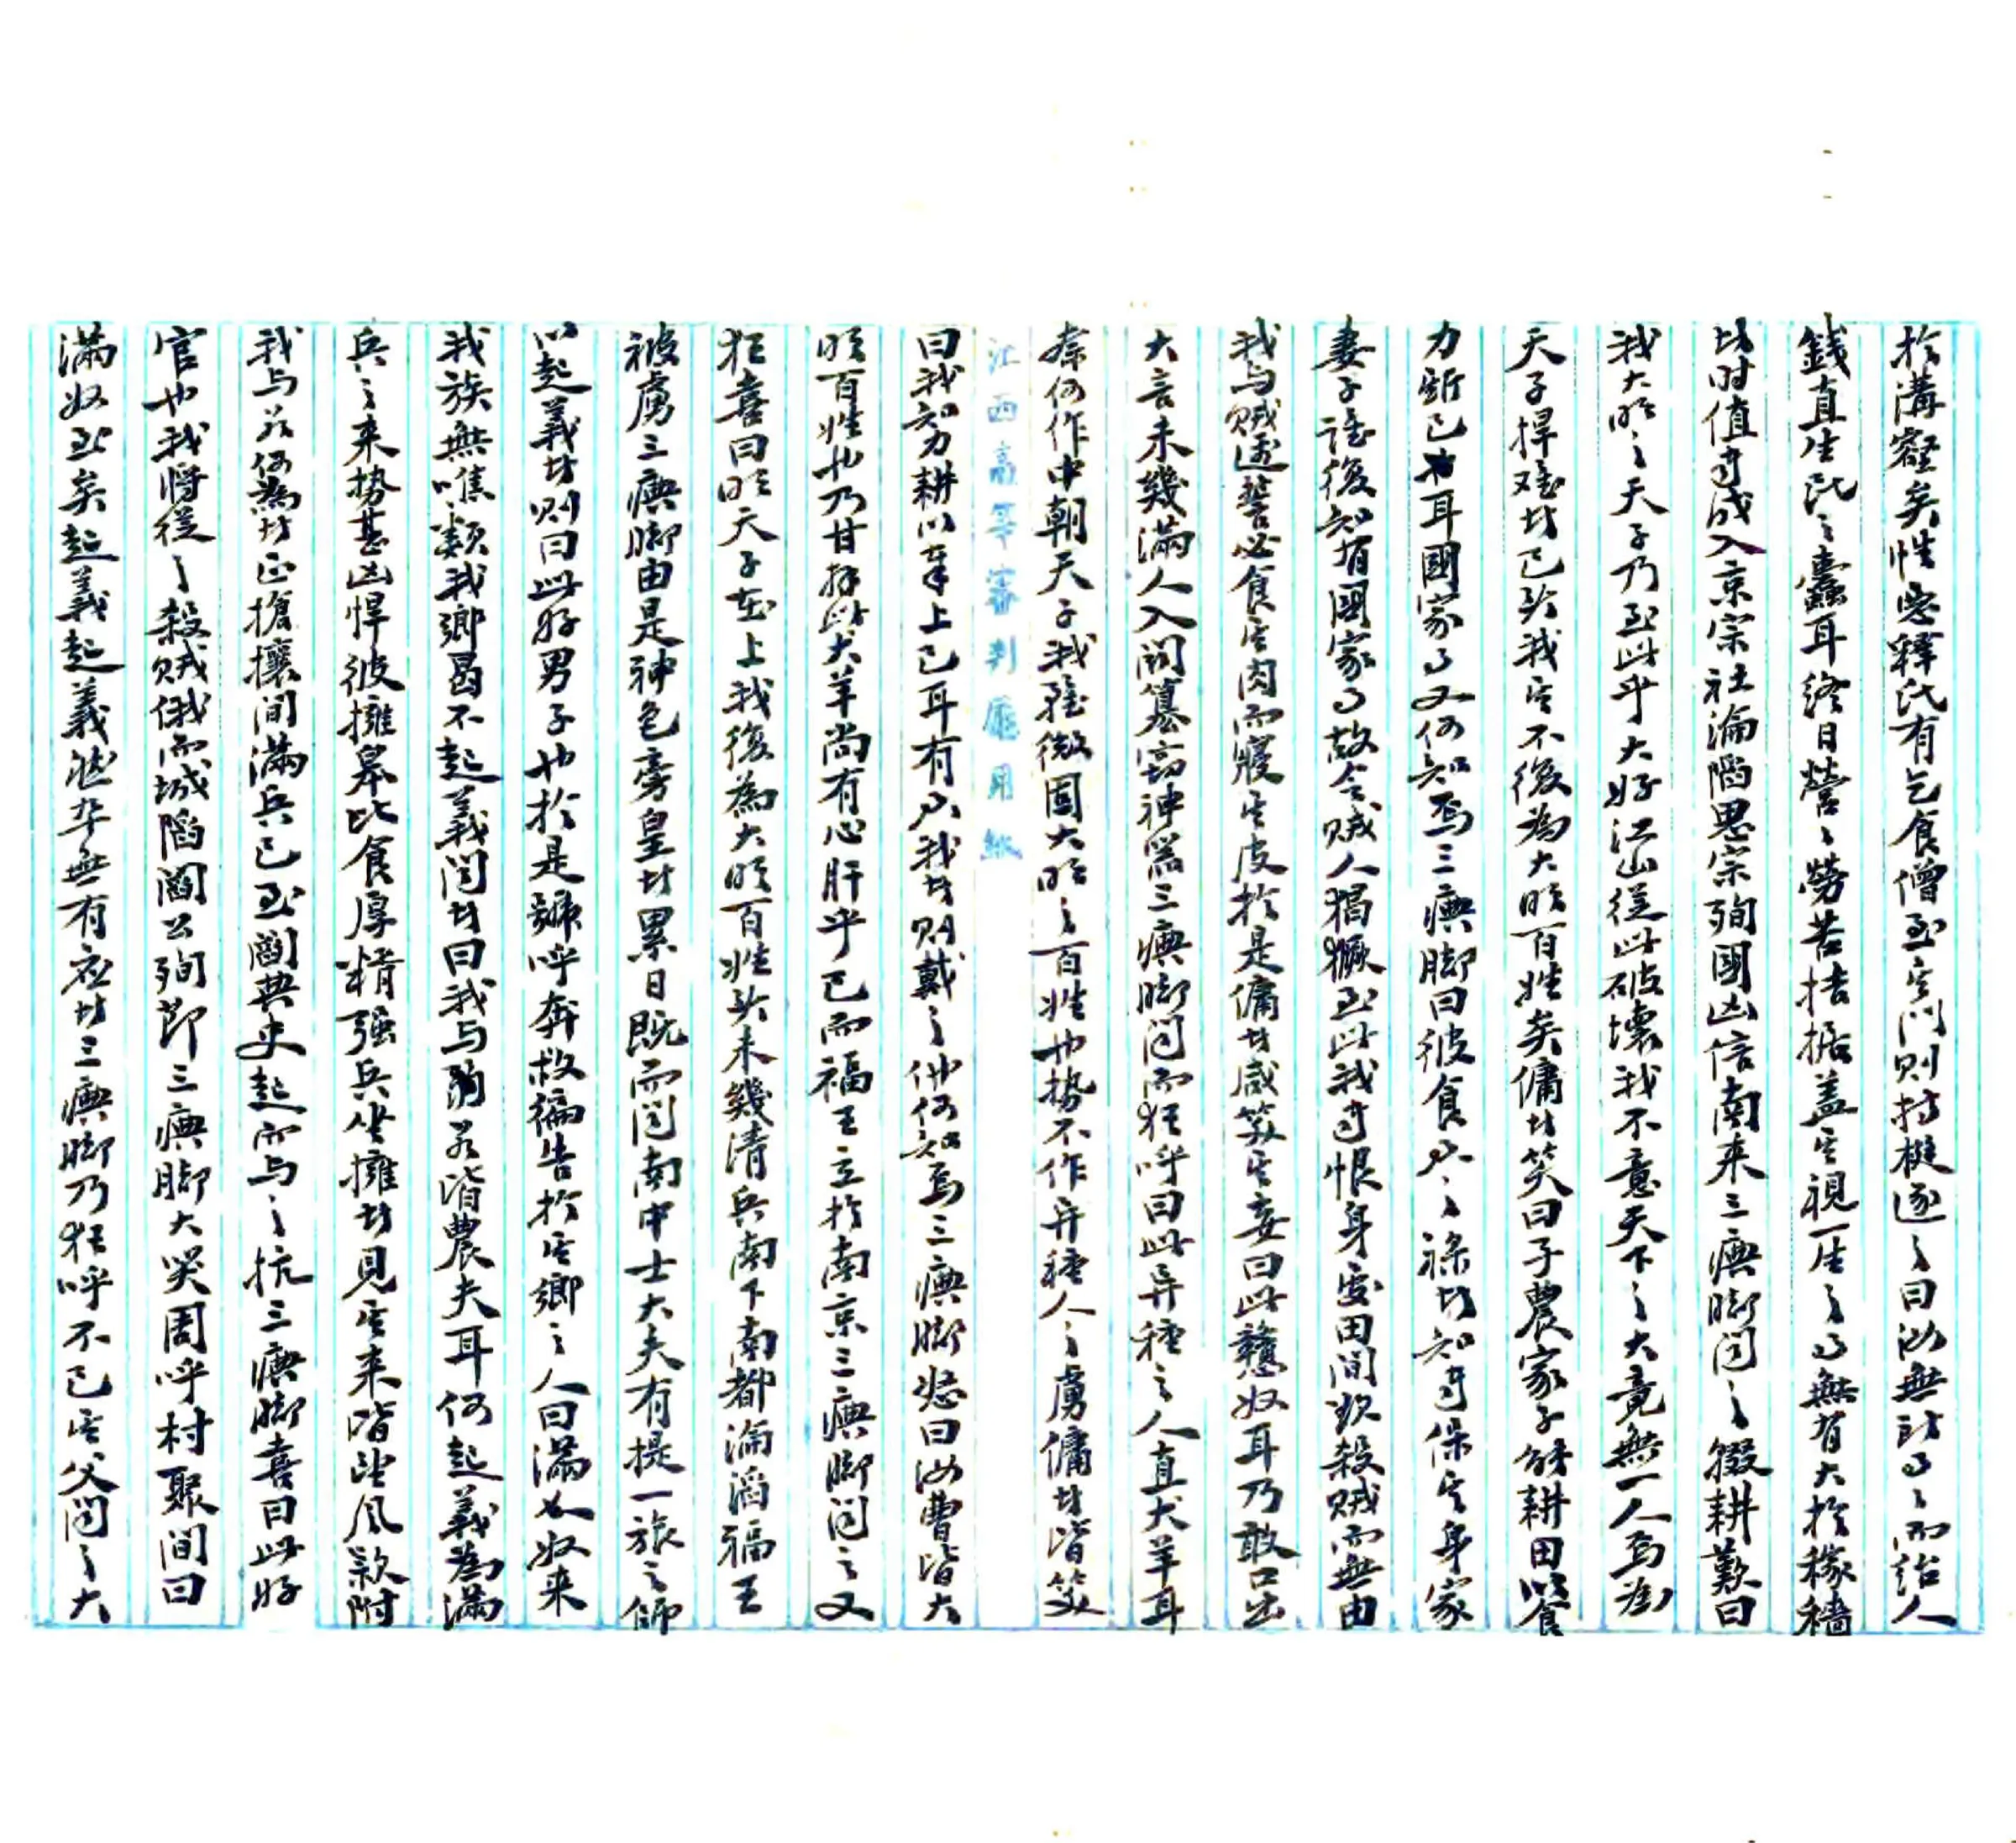 於溝壑矣性惡釋氏有乞食僧至其門則持梃逐之曰汝無訪事而紿人
錢直生民之蠹耳終日營營勞苦拮据蓋其視一生之事無有大於稼穡
者時值守成入京宗社淪陷思宗殉國凶信南来三痹脚聞之輟耕歎曰
我大明之天子乃至此乎大好江山從此破壞我不意天下之大竟無一人焉為
天子捍難者已矣我其不復為大明百姓矣傭者笑曰子農家子能耕田以食
力斯已耳國家事又何知焉三痹脚曰彼食人之祿者知守保其身家
妻子誰復知有國家事故令賊人猖獗至此我守恨身安田間欲殺賊而無由
我与賊遇誓必食其肉而寢其皮於是傭者咸笑其妄曰此戇奴耳乃敢口出
大言未幾滿人入關篡竊神器三痹脚聞而狂呼曰此异種之人直犬羊耳
奈何作中朝天子我雖微固大明之百姓也勢不作异種人之虜傭者皆笑
江西高等審判廳用紙
曰我努力耕以奉上已耳有人我者則戴之他何知焉三痹脚怒曰汝曹皆大
明百姓也乃甘拜此犬羊尚有心肝乎已而福王立於南京三痹脚聞之又
狂喜曰明天子在上我復為大明百姓矣未幾清兵南下南都淪滔福王
被虜三痹脚由是神色旁皇者累日既而聞南中士大夫有提一旅之師
以起義者則曰此好男子也於是號呼奔救徧告於其鄉之人曰滿奴来
我族無噍類我鄉曷不起義聞者曰我与若皆農夫耳何起義為滿
兵之来勢甚凶悍彼擁皋比食厚糈强兵坐擁者見其来皆望風欵附
我与若何為者正搶攘間滿兵已至閻典史起而与之抗三痹脚喜曰此好
官也我將從之殺賊俄而城陷閻公殉節三痹脚大哭周呼村聚間曰
滿奴至矣起義起義然卒無有应者三痹脚乃狂呼不已其父聞之大